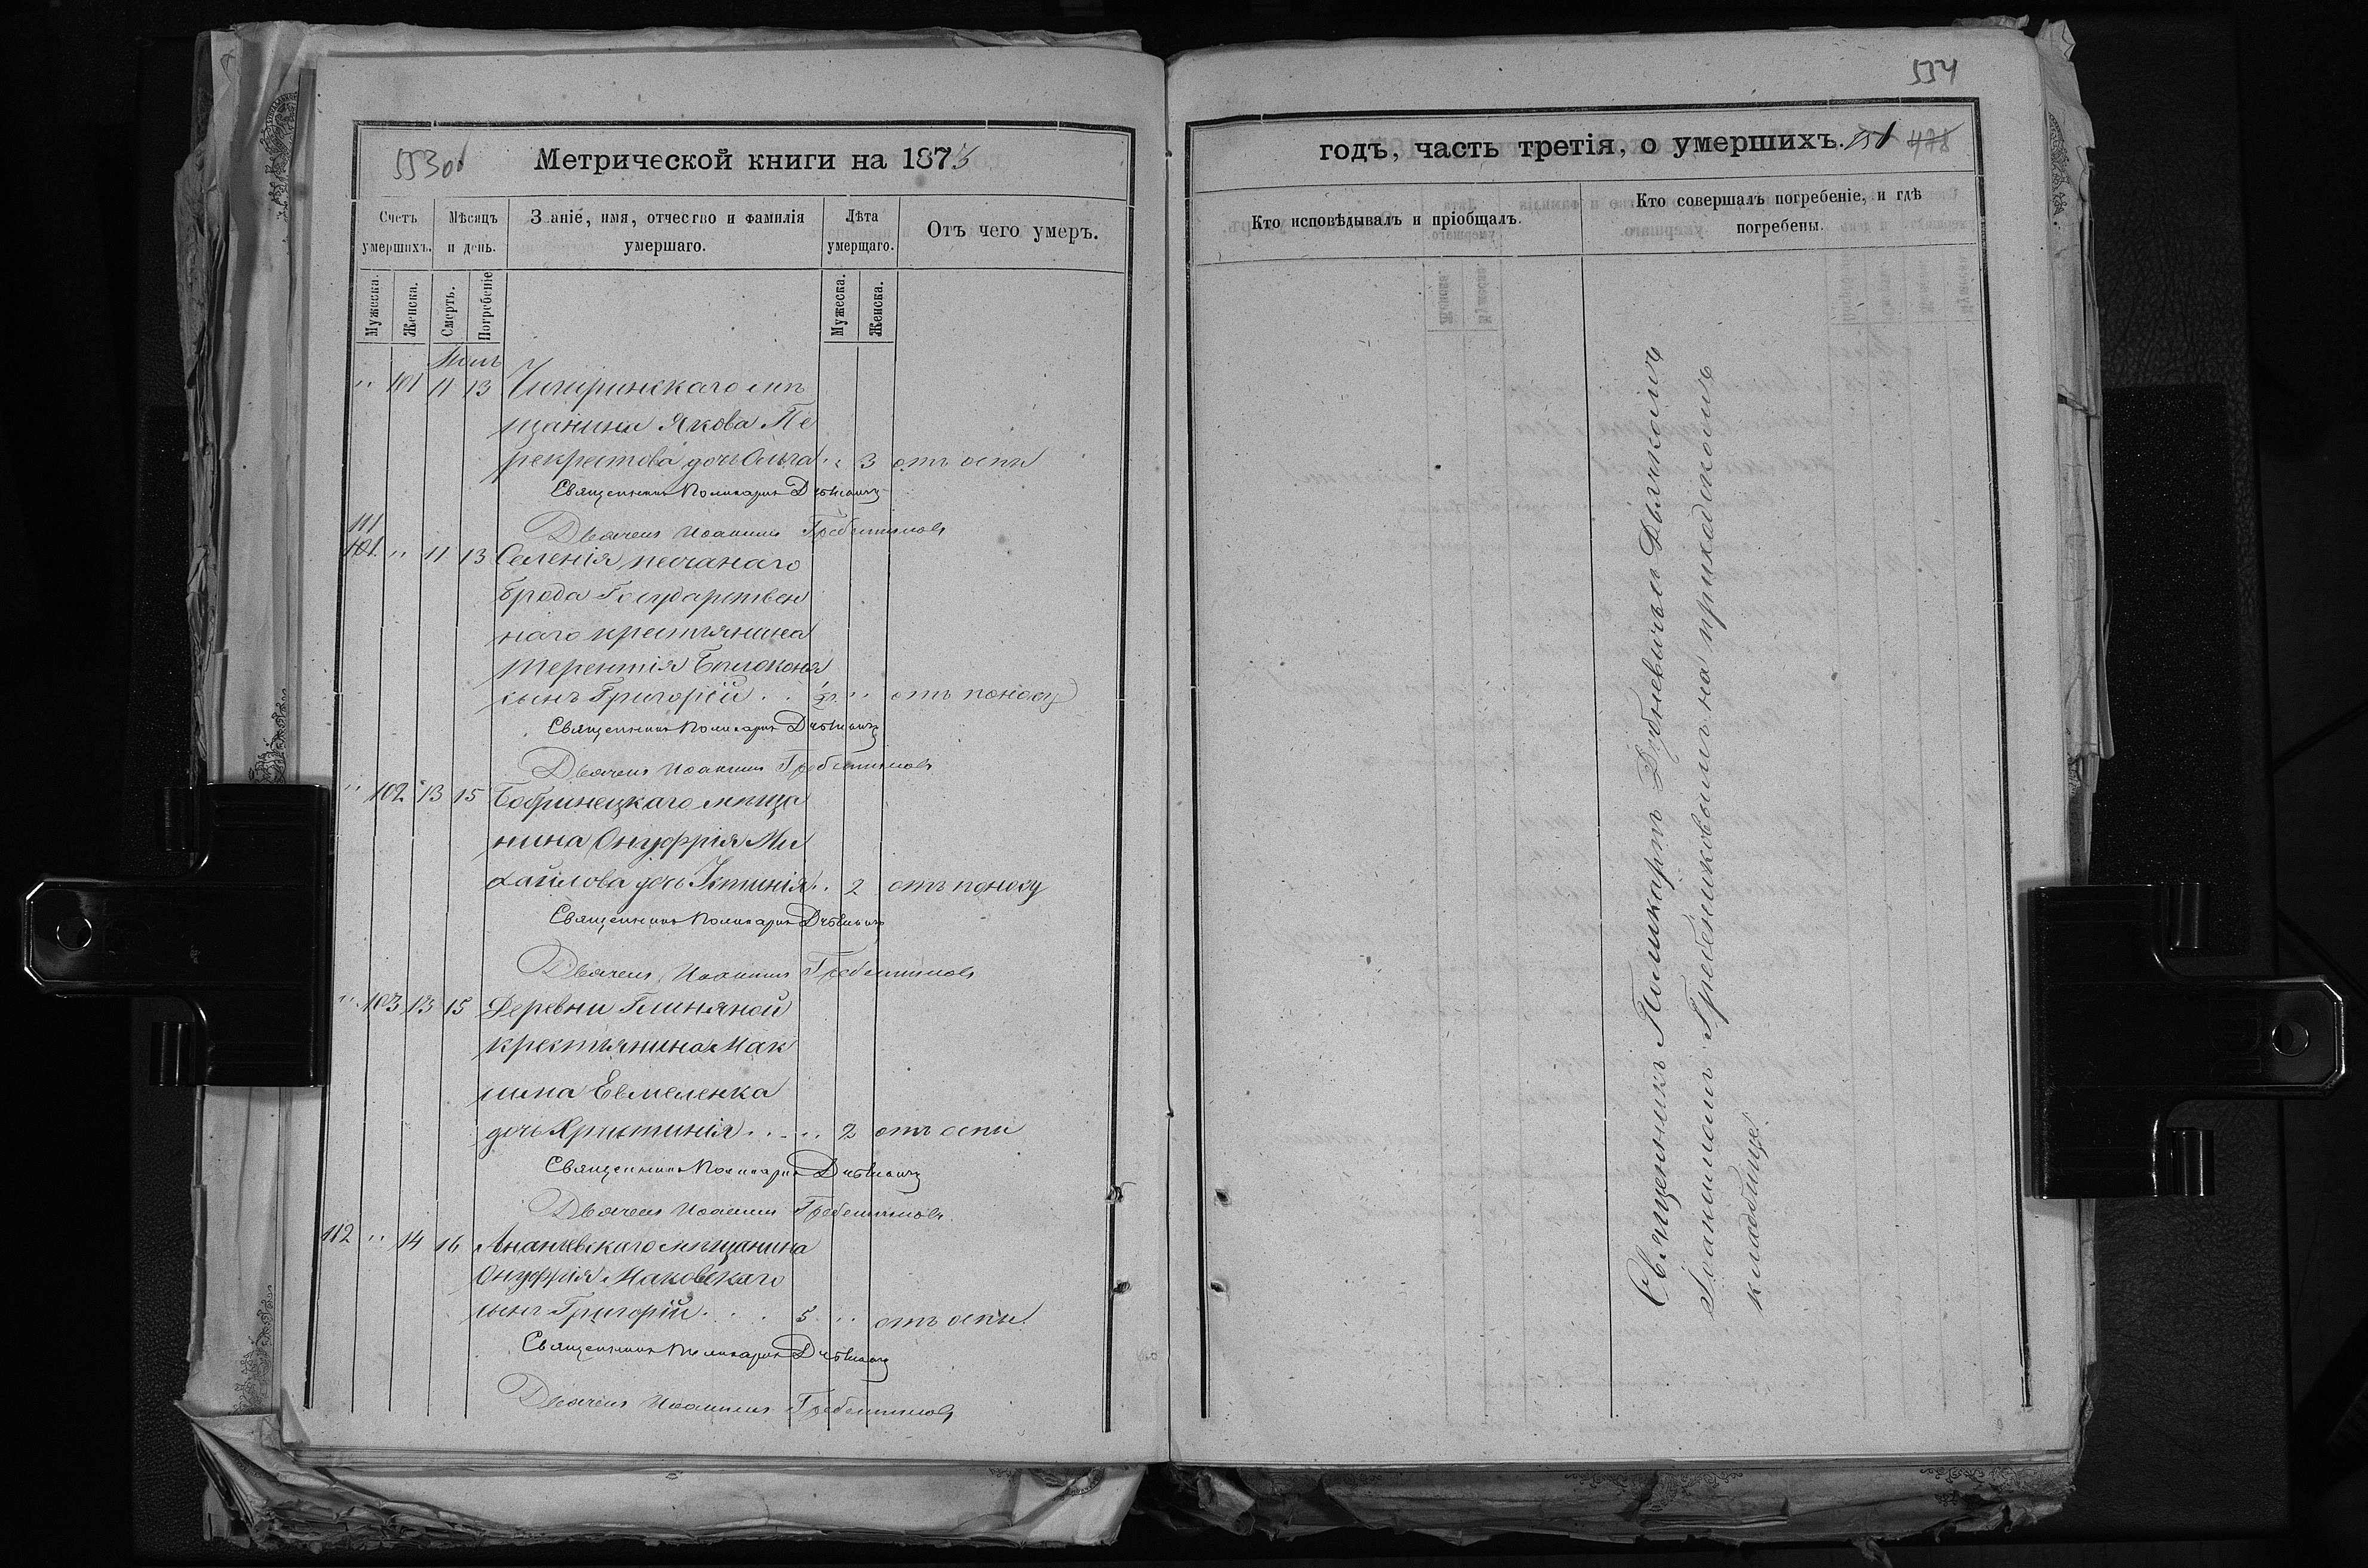 553об
Метрической книги на 1873
Счетъ умершихъ.
Мѣсяцъ и день.
Званіе, имя, отчество и фамилія умершаго.
Лѣта умершаго.
Отъ чего умеръ.
Мужеска.
Женска.
Смерть.
Погребеніе
Мужеска.
Женска.
" 101 11 13 Чигиринскаго мѣ
щанина Якова Пе
рекрестова дочь Ольга " 3 отъ оспы
Священникъ Поликарпъ Дубневичъ
Дьячекъ Иоакимъ Гребенниковъ
111
101 " 11 13 Селенія песчанаго
брода Государствен
наго крестьянина
Терентія Бѣлоконя
сынъ Григорій . . " отъ поносу
Священникъ Поликарпъ Дубневичъ
Дьячекъ Иоакимъ Гребенниковъ
" 102 13 15 Бобринецкаго мѣща
нина Онуфрія Ми
хайлова дочь Устинія . . 2 отъ поносу
Священникъ Поликарпъ Дубневичъ
Дьячекъ Иоакимъ Гребенниковъ
" 103 13 15 Деревни Глиняной
крестьянина Мак
сима Евмеленка
дочь Христинія . . . . 2 отъ оспы
Священникъ Поликарпъ Дубневичъ
Дьячекъ Иоакимъ Гребенниковъ
112 " 14 16 Ананьевскаго мѣщанина
Онуфрія Маковскаго
сынъ Григорій . . 5 " отъ оспы
Священникъ Поликарпъ Дубневичъ
Дьячекъ Иоакимъ Гребенниковъ
554
годъ, часть третія, о умершихъ. 478
Кто исповѣдывалъ и пріобщалъ.
Кто совершалъ погребеніе, и гдѣ
погребены.
Священникъ Поликарпъ Дубневичъ съ Дьячкомъ
Іоакимомъ Гребенниковымъ на приходскомъ
кладбищѣ